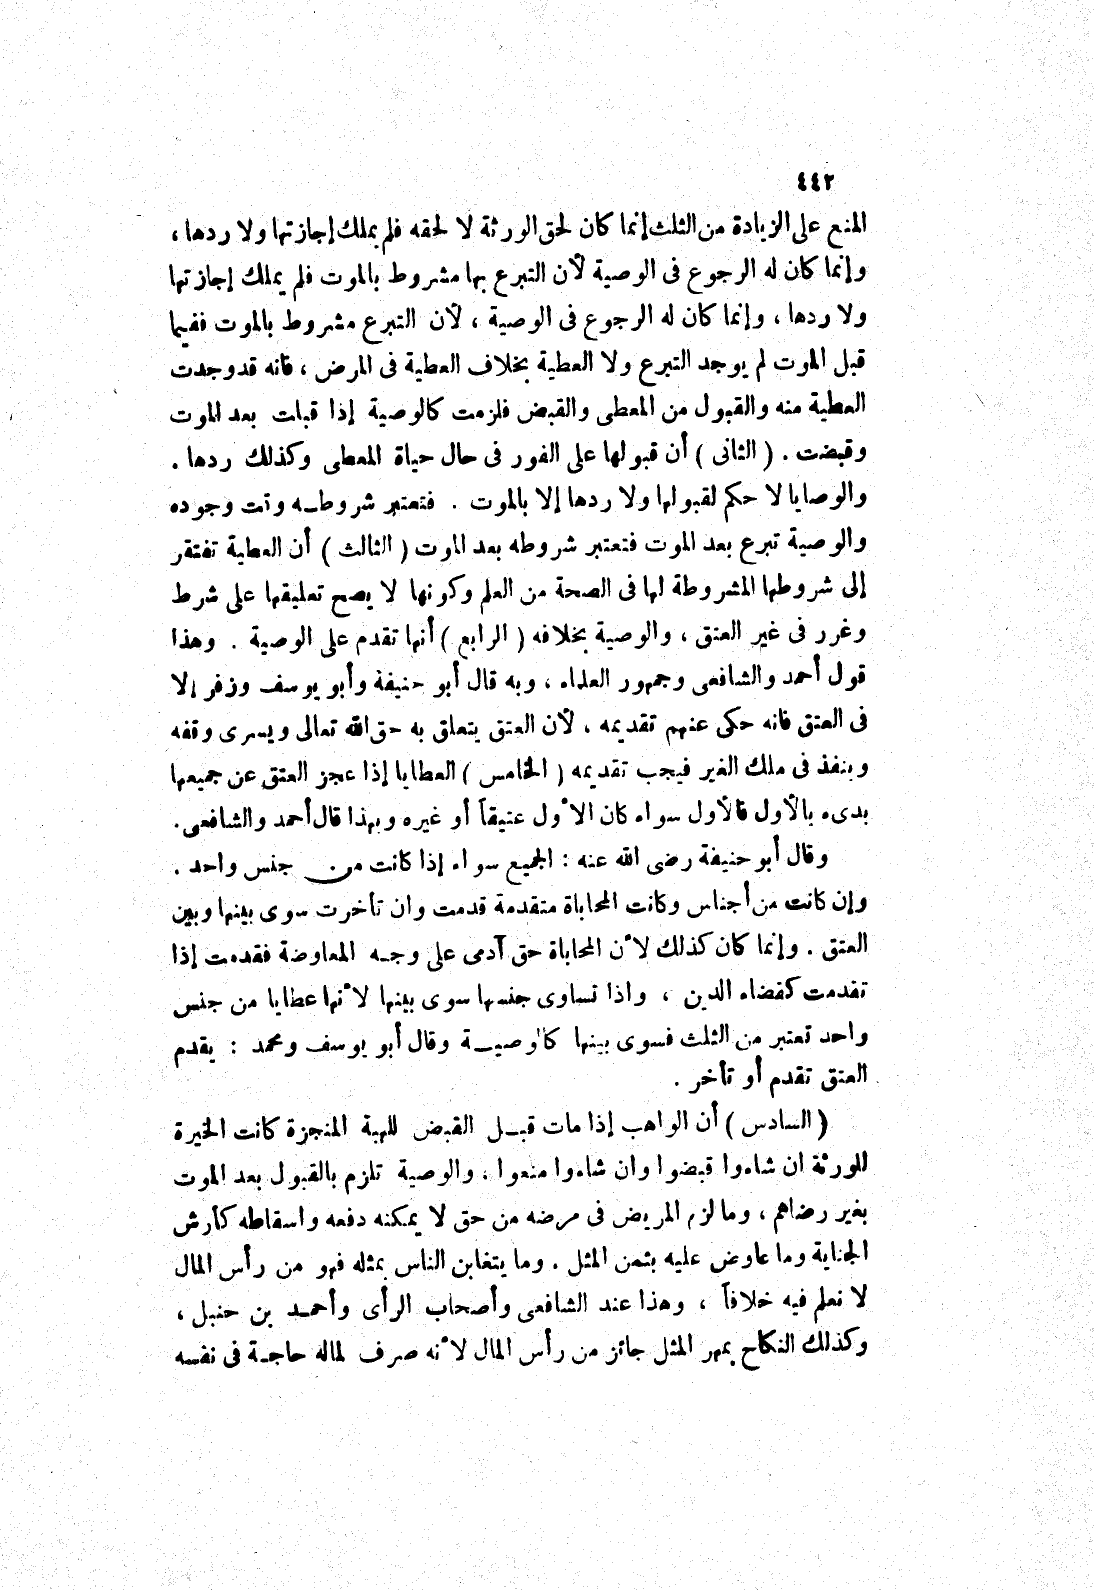 ٤٤٢
المنع على الزيادة من الثلث إنما كان لحق الورثة لا لحقه فلم يملك إجازتها ولا ردها ،
وإنما كان له الرجوع فى الوصية لأن التبرع بها مشروط بالموت فلم يملك إجازتها
ولا ردها ، وإنما كان له الرجوع فى الوصية ، لأن التبرع مشروط بالموت ففيما
قبل الموت لم يوجد التبرع ولا العطية بخلاف العطية فى المرض ، فانه قد وجدت
العطية منه والقبول من المعطى والقبض فلزمت كالوصية إذا قبلت بعد الموت
وقبضت . ( الثانى ) أن قبولها على الفور فى حال حياة المعطى وكذلك ردها .
والوصايا لا حكم لقبولها ولا ردها إلا بالموت . فتعتبر شروطه وقت وجوده
والوصية تبرع بعد الموت فتعتبر شروطه بعد الموت ( الثالث ) أن العطية تفتقر
إلى شروطها المشروطة لها فى الصحة من العلم وكونها لا يصح تعليقها على شرط
وغرر فى غير العتق ، والوصية بخلافه ( الرابع ) أنها تقدم على الوصية . وهذا
قول أحمد والشافعى وجمهور العلماء ، وبه قال أبو حنيفة وأبو يوسف وزفر إلا
فى العتق فانه حكى عنهم تقديمه ، لأن العتق يتعلق به حق الله تعالى ويسرى وقفه
وينفذ فى ملك الغير فيجب تقديمه ( الخامس ) العطايا إذا عجز العتق عن جميعها
بدىء بالأول فالأول سواء كان الأول عتيقاً أو غيره وبهذا قال أحمد والشافعى.
وقال أبو حنيفة رضى الله عنه : الجميع سواء إذا كانت من جنس واحد .
وإن كانت من أجناس وكانت المحاباة متقدمة قدمت وان تأخرت سوى بينها وبين
العتق . وإنما كان كذلك لأن المحاباة حق آدمى على وجه المعاوضة فقدمت إذا
تقدمت كقضاء الدين ، واذا تساوى جنسها سوى بينها لأنها عطايا من جنس
واحد تعتبر من الثلث فسوى بينها كالوصية وقال أبو يوسف ومحمد : يقدم
العتق تقدم أو تأخر .
( السادس ) أن الواهب إذا مات قبل القبض للهبة المنجزة كانت الخيرة
للورثة ان شاءوا قبضوا وان شاءوا منعوا . والوصية تلزم بالقبول بعد الموت
بغير رضاهم ، وما لزم المريض فى مرضه من حق لا يمكنه دفعه واسقاطه كأرش
الجناية وما عاوض عليه بثمن المثل . وما يتغابن الناس بمثله فهو من رأس المال
لا نعلم فيه خلافاً ، وهذا عند الشافعى وأصحاب الرأى وأحمد بن حنبل ،
وكذلك النكاح بمهر المثل جائز من رأس المال لأنه صرف لماله حاجة فى نفسه